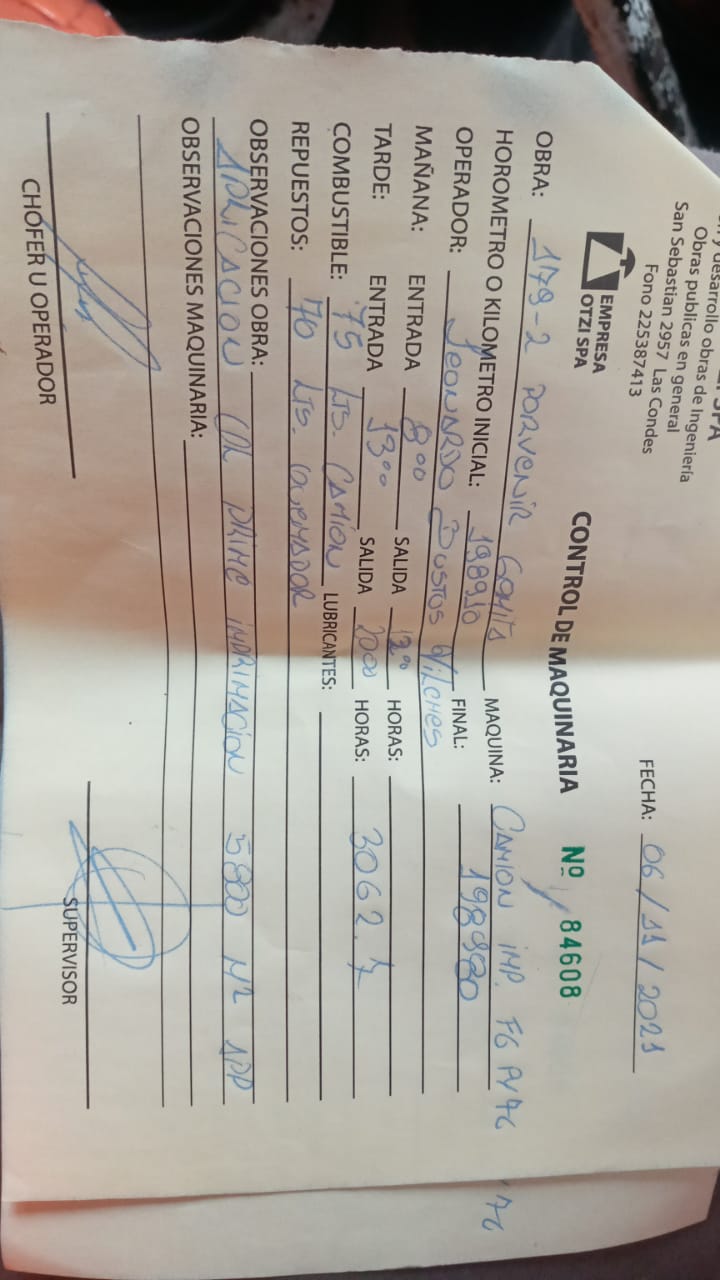 SPA
y desarrollo obras de Ingeniería
Obras publicas en general
San Sebastian 2957 Las Condes
Fono 225387413
EMPRESA
OTZI SPA
FECHA: 06/11/2021
CONTROL DE MAQUINARIA Nº 84608
OBRA: 179-2 PORVENIR GOMITA MAQUINA: CAMION IMP. FG PY76 76
HOROMETRO O KILOMETRO INICIAL: 198910 FINAL: 198980
OPERADOR: LEONARDO BUSTOS VILCHES
MAÑANA: ENTRADA 8 00 SALIDA 12 00 HORAS:
TARDE: ENTRADA 13 00 SALIDA 20 00 HORAS: 3062.7
COMBUSTIBLE: 75 LTS. CAMION LUBRICANTES:
REPUESTOS: 70 LTS. QUEMADOR
OBSERVACIONES OBRA:
APLICACION COL PRIME IMPRIMACION 5800 M² APP
OBSERVACIONES MAQUINARIA:
CHOFER U OPERADOR SUPERVISOR